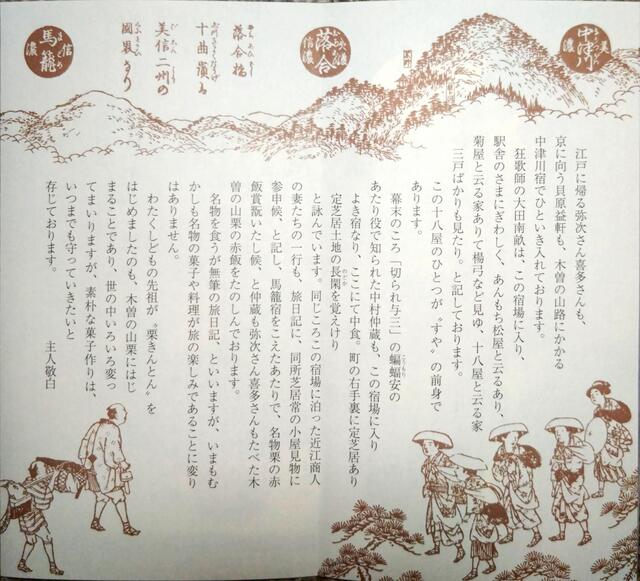 美濃
中津川
美濃
落合
信濃
落合橋
十曲嶺有
美信二州の
國界なり
信濃
馬籠
江戸に帰る弥次さん喜多さんも、
京に向う貝原益軒も、木曽の山路にかかる
中津川宿でひといき入れております。
狂歌師の大田南畝は、この宿場に入り、
駅舎のさまにぎわしく、あんもち松屋と云るあり、
菊屋と云る家ありて楊弓など見ゆ、十八屋と云る家
三戸ばかりも見たり。と記しております。
この十八屋のひとつが〝すや〟の前身で
あります。
幕末のころ「切られ与三」の蝙蝠安の
あたり役で知られた中村仲蔵も、この宿場に入り
よき宿なり、ここにて中食。町の右手裏に定芝居あり
定芝居土地の長閑を覚えけり
と詠んでいます。同じころこの宿場に泊った近江商人
の妻たちの一行も、旅日記に、同所芝居常の小屋見物に
参申候、と記し、馬籠宿をこえたあたりで、名物栗の赤
飯賞翫いたし候、と仲蔵も弥次さん喜多さんもたべた木
曽の山栗の赤飯をたのしんでおります。
名物を食うが無筆の旅日記、といいますが、いまもむ
かしも名物の菓子や料理が旅の楽しみであることに変り
はありません。
わたくしどもの先祖が〝栗きんとん〟を
はじめましたのも、木曽の山栗にはじ
まることであり、世の中いろいろ変っ
てまいりますが、素朴な菓子作りは、
いつまでも守っていきたいと
存じております。
主人敬白